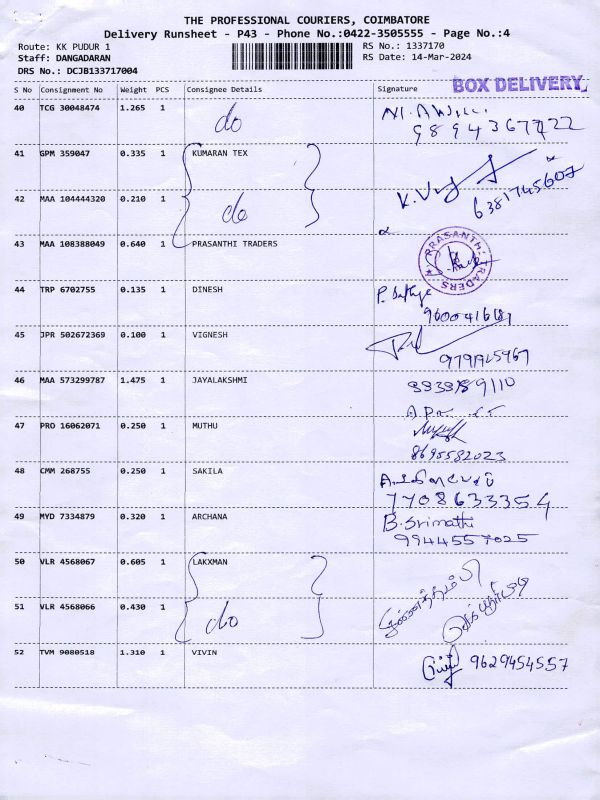 THE PROFESSIONAL COURIERS, COIMBATORE
Delivery Runsheet - P43 - Phone No.:0422-3505555 - Page No.:4
Route: KK PUDUR 1 RS No.: 1337170
Staff: DANGADARAN RS Date: 14-Mar-2024
DRS No.: DCJB133717004
BOX DELIVERY
S No Consignment No Weight PCS Consignee Details Signature
40 TCG 30048474 1.265 1 do
9894367722
41 GPM 359047 0.335 1 KUMARAN TEX
6381745607
42 MAA 104444320 0.210 1 do
43 MAA 108388049 0.640 1 PRASANTHI TRADERS PRASANTHI TRADERS
44 TRP 6702755 0.135 1 DINESH
45 JPR 502672369 0.100 1 VIGNESH
46 MAA 573299787 1.475 1 JAYALAKSHMI
47 PRO 16062071 0.250 1 MUTHU
8695582023
48 CMM 268755 0.250 1 SAKILA
7708633354
49 MYD 7334879 0.320 1 ARCHANA B. Srimathi
9944557025
50 VLR 4568067 0.605 1 LAKXMAN
51 VLR 4568066 0.430 1 do
52 TVM 9080518 1.310 1 VIVIN 9629454557